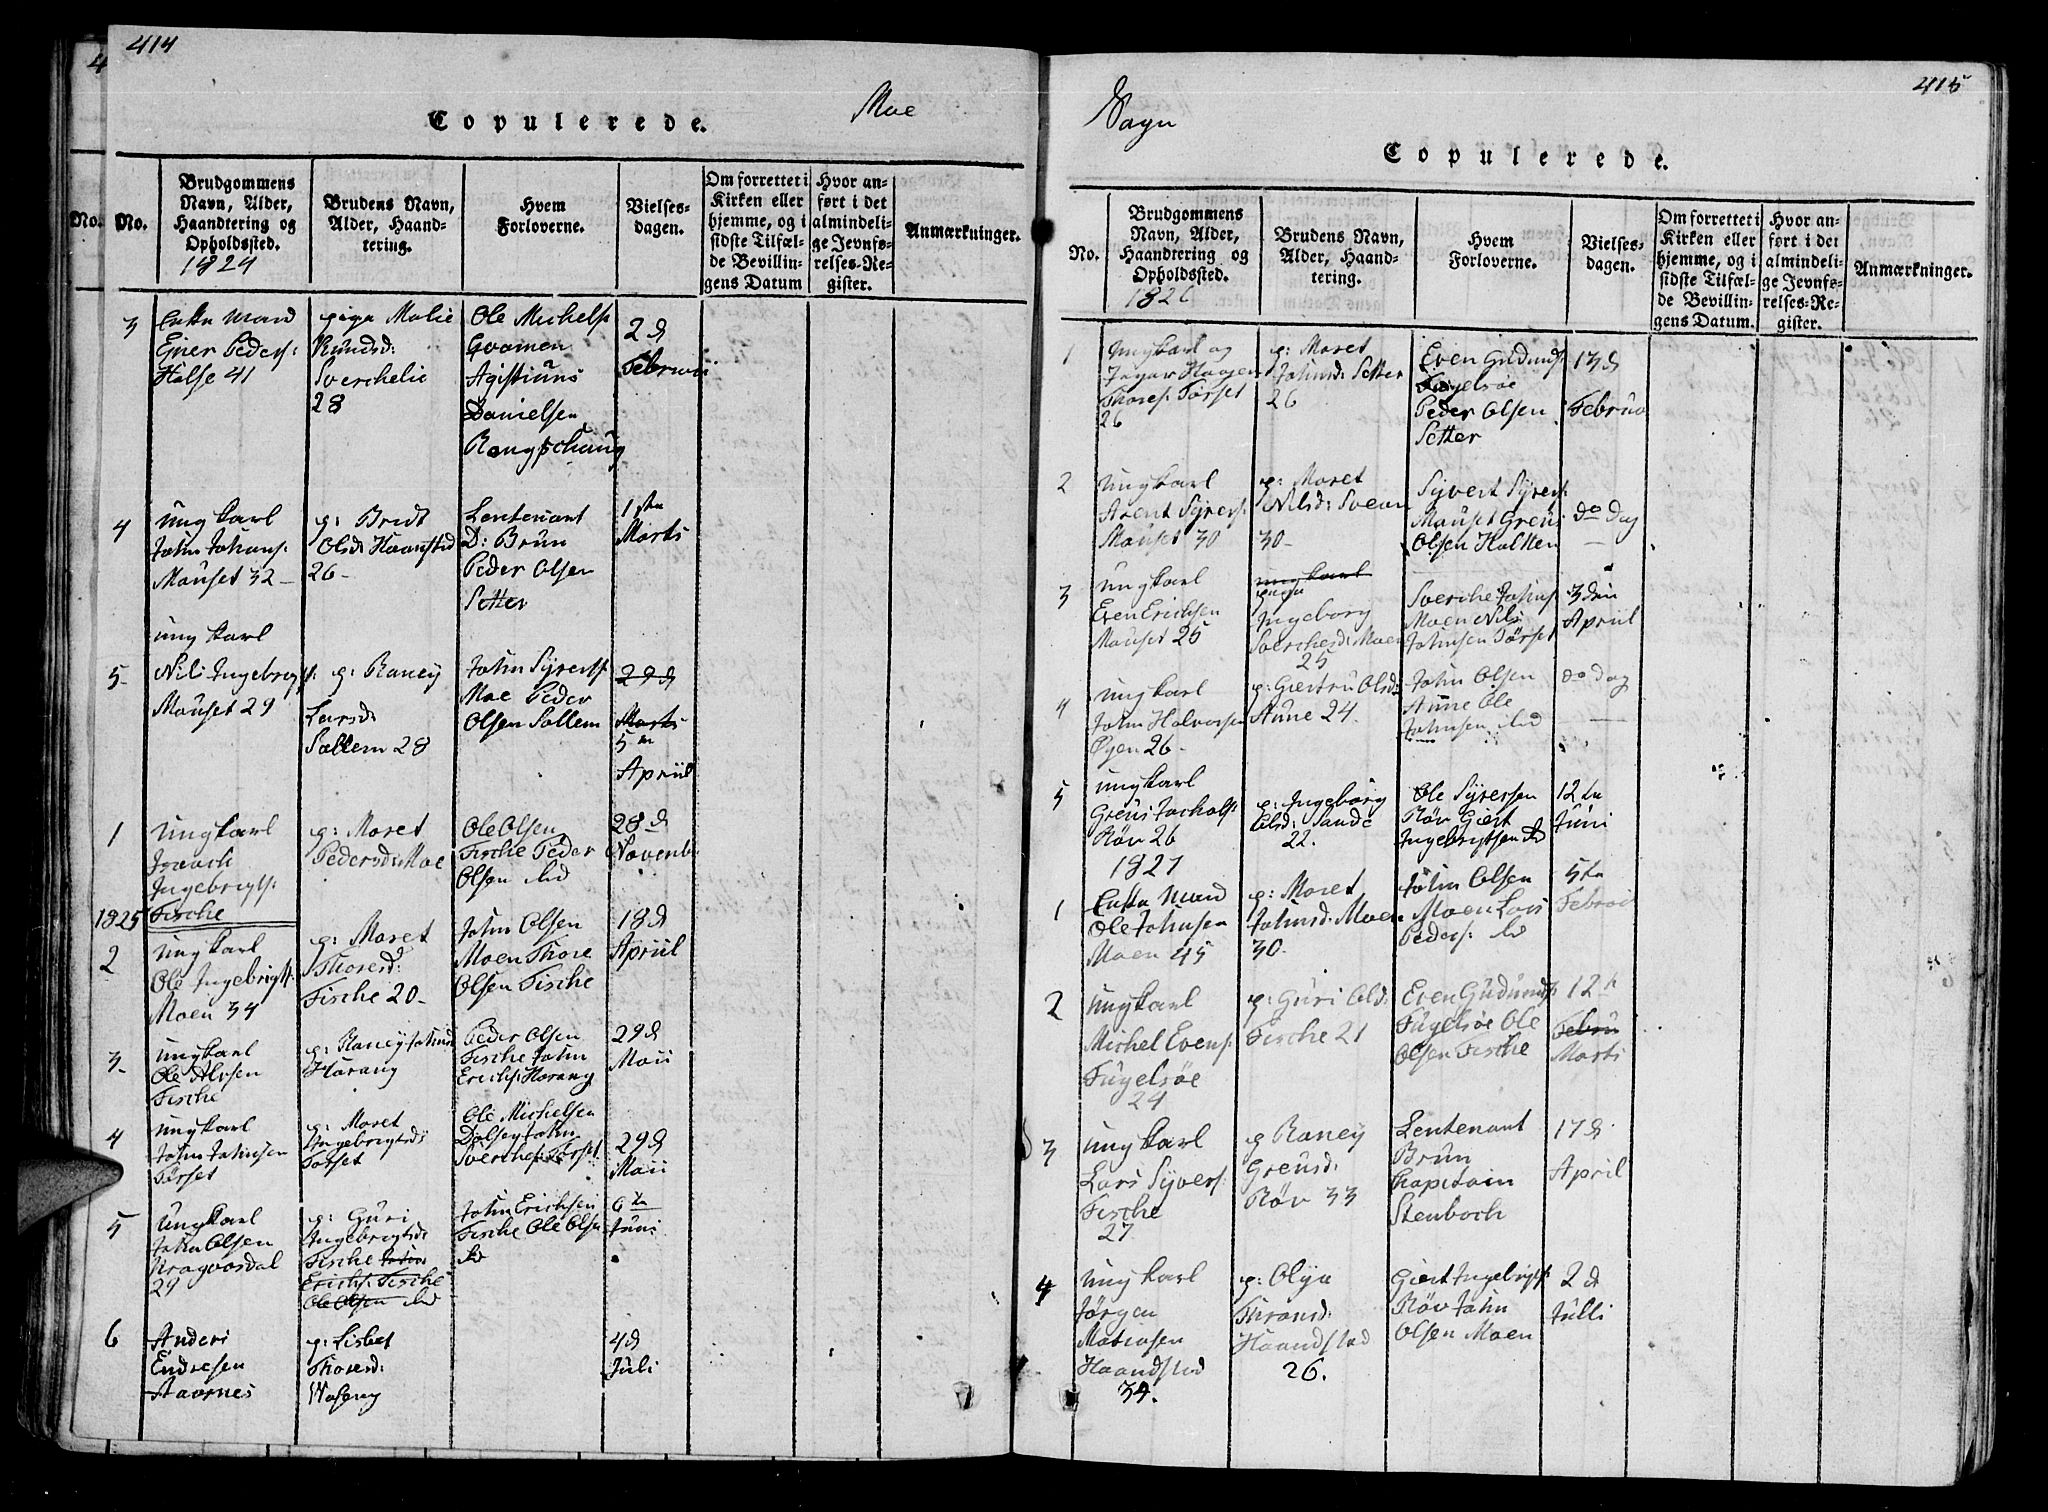 414
Copulerede.
Moe
No.
Brudgommens
Navn, Alder,
Haandtering og
Opholdssted.
1824
Brudens Navn,
Alder, Haand-
tering.
Hvem
Forloverne.
Vielses-
dagen.
Om forrettet i
Kirken eller
hjemme, og i
sidste Tilfæl-
de Bevillin-
gens Datum
Hvor an-
ført i det
almindeli-
ge Jevnfø-
relses-Re-
gister.
Anmærkninger.
3
Enke Mand
Einer Peders:
Halse 41
piga Malie
Knudsd:
Sverchelie
28
Ole Michels:
Goomen
Agistiuns
Danielsen
Rangschaug
2 d
Februari
4
ung karl
John Johans:
Mauset 32
p: Bridt
Olsd: Haanstad
26
Leutenant
D: Brun
Peder Olsen
Setter
1ste
Marts
5
ung karl
Nils Ingebrigts:
Mauset 29
p: Raney
Larsd:
Sollem 28
John Syvers:
Moe Peder
Olsen Sollem
29 d
Marts
5 te
Apriil
1
ungkarl
Ingebrigts:
Fische
p: Maret
Pedersd: Moe
Ole Olsen
Fische Peder
Olsen ibid
28 d
Novemb:
1825
2
ungkarl
Ole Ingebrigts:
Moen 34
p: Maret
Thoresd:
Fische 20
John Olsen
Moen Thore
Olsen Fische
18 d
Apriil
3
ungkarl
Ole Alvsen
Fische
p: Raney Johnsd:
Harang
Peder Olsen
Fische John
Erichs: Harang
29 d
Maii
4
ungkarl
John Johnsen
Torset
p: Maret
Ingebrigtsd:
Torset
Ole Michelsen
Dalsey John
Sverches: Torset
29 d
Maii
5
ungkarl
John Olsen
Kragvasdal
29
p: Guri
Ingebrigtsd:
Fische John
Erichs: Fische
Ole Olsen ibid
John Erichsen
Fische Ole Olsen
ibid
6te
Juni
6
Anders
Endresen
Aavrnes
p: Lisbet
Thoresd:
Wasang
4 d
Juli
415
Sogn
Copulerede.
No.
Brudgommens
Navn, Alder,
Haandtering og
Opholdssted.
1826
Brudens Navn,
Alder, Haand-
tering.
Hvem
Forloverne.
Vielses-
dagen.
Om forrettet i
Kirken eller
hjemme, og i
sidste Tilfæl-
de Bevillin-
gens Datum.
Hvor an-
ført i det
almindeli-
ge Jevnfø-
relses-Re-
gister.
Anmærkninger.
1
Ungkarl og
Jæger Haagen
Thores: Torset
26
p: Maret
Johnsd: Setter
26
Even Gudunds:
Fugelsøe
Peder Olsen
Setter
13 d
Februa
2
ungkarl
Arent Syvers:
Mauset 30
p: Maret
Nilsd: Sveen
30
Syvert Syvers:
Mauset Greus
Olsen Halten
do Dag
3
ungkarl
Even Erichsen
Mauset 25
ungkarl
piga
Ingeborg
Sverchesd: Moen
25
Sverche Johns:
Moen Nils
Johnsen Torset
3 die
Apriil
4
ungkarl
John Halvorsen
Øyen 26
p: Giertru Olsd:
Aune 24
John Olsen
Aune Ole
Johnsen ibid
do Dag
5
ungkarl
Greus
Røv 26
p: Ingeborg
Olsd: Sande
22.
Ole Syversen
Røv Giert
Ingebrigtsen ibd
12 te
Juni
1827
1
Enke Mand
Ole Johnsen
Moen 45
p: Maret
Johnsd: Moen
30
John Olsen
Moen Lars
Peders: ibid
5 te
Februar
2
ungkarl
Michel Evens:
Fugelsøe
24
p: Guri Olsd:
Fische 21
Even Gudunds:
Fugelsøe Ole
Olsen Fische
12 te
Febru
Marts
3
ungkarl
Lars Syvers:
Fische
27
p Raney
Greusd:
Røv 33
Leutenant
Brun
Kapitain
Stenboch
17 d
April
4
ungkarl
Jørgen
Matiasen
Haandstad
34.
p: Olya
Thronsd:
Haandstad
26.
Giert Ingebrigts:
Røv John
Olsen Moen
2 d
Julli